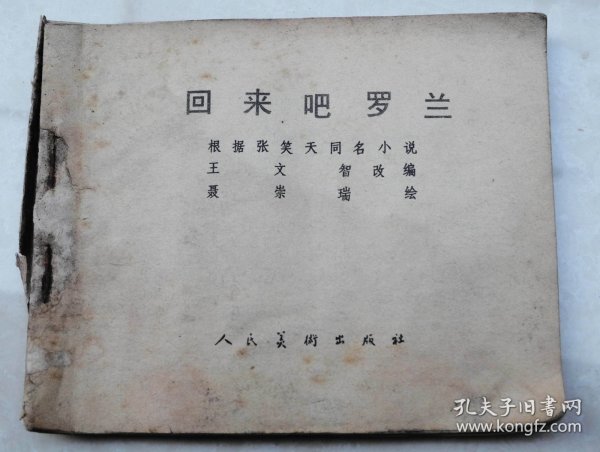 回来吧罗兰
根据张笑天同名小说
王文智改编
聂崇瑞绘
人民美術出版社
孔夫子旧书网
www.kongfz.com